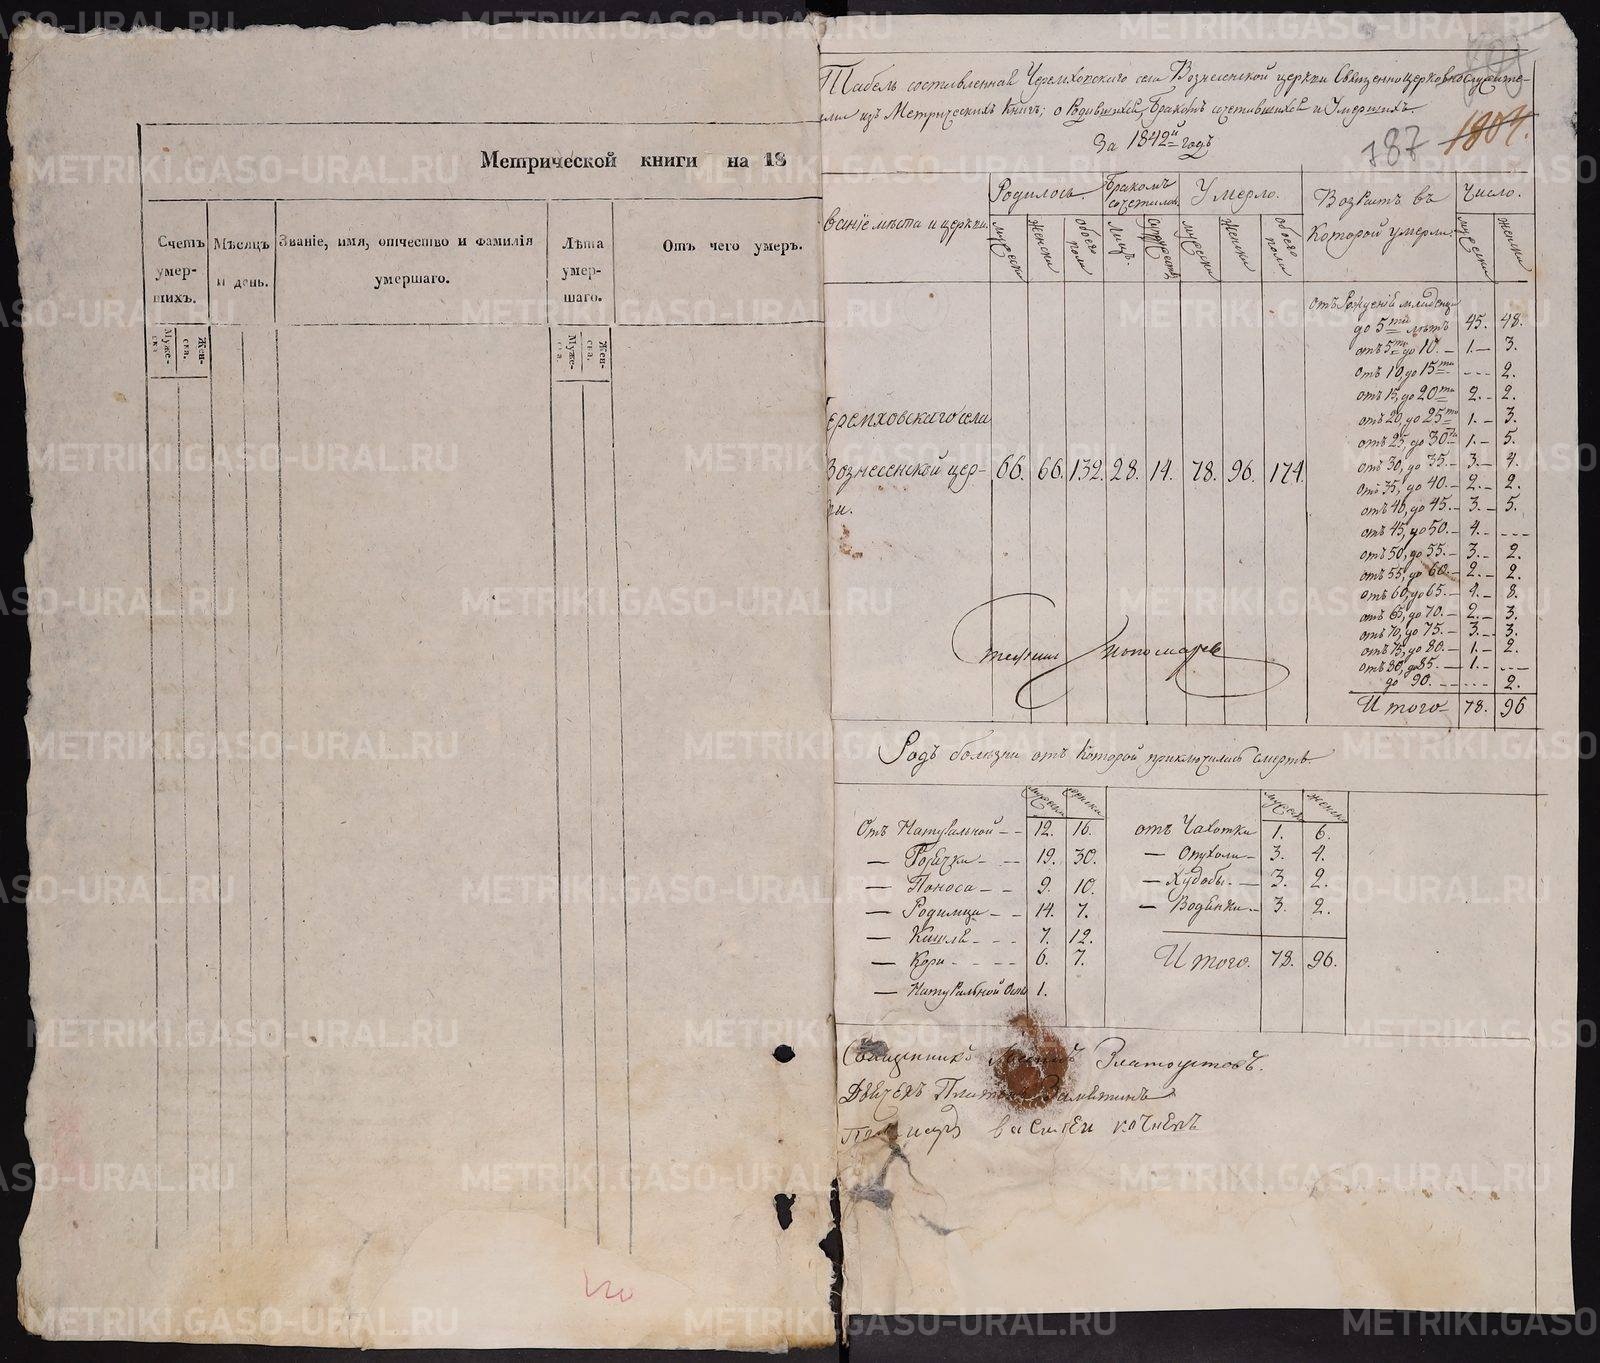 Метрической книги на 18
Счетъ умер-шихъ.
Муже-ска.
Жен-ска.
Мѣсяцъ и день.
Званіе, имя, отчество и фамилія умершаго.
Лѣта умер-шаго.
Муже-ска.
Жен-ска.
Отъ чего умеръ.
Табель составленная Черемховскаго села Вознесенской церкви Священноцерковнослужите-
лями изъ Метрическихъ Книгъ; о Родившихся, Бракомъ сочетавшихся и Умершихъ.
За 1842й годъ
187 1804.
вание мѣста и церкви.
Родилось.
мужска
женска
обоего пола
Бракомъ сочетались
Лицъ.
Умерло.
мужска
женска
обоего пола
Возрастъ въ Которой умерли:
Число.
мужска
женска
отъ Рожденія младенца
до 5ти лѣтъ 45. 48.
отъ 5ти до 10. 1. 3.
отъ 10, до 15ти --- 2.
отъ 15, до 20ти 2. 2.
отъ 20, до 25ти 1. 3.
отъ 25, до 30ти 1. 5.
отъ 30, до 35. 3. 4.
отъ 35, до 40. 2. 2.
отъ 40, до 45. 3. 5.
отъ 45, до 50. 4. ---
отъ 50, до 55. 3. 2.
отъ 55, до 60. 2. 2.
отъ 60, до 65. 4. 8.
отъ 65, до 70. 2. 3.
отъ 70, до 75. 3. 3.
отъ 75, до 80. 1. 2.
отъ 80, до 85. 1. ---
до 90. --- 2.
Итого 78. 96
Черемховскаго села
Вознесенской цер- 66. 66. 132. 28. 14. 78. 96. 174.
ви.
Пономарев
Родъ болѣзни отъ Которой приключилась Смерть.
мужска женска мужска женска
Отъ Натуральной 12. 16. отъ Чахотки 1. 6.
— Горячки 19. 30. — Опухоли 3. 4.
— Поноса 9. 10. — Худобы 3. 2.
— Родимца 14. 7. — Водянки 3. 2.
— Кашля 7. 12.
— Кори 6. 7. Итого. 78. 96.
— Натуральной Оспы 1.
Священникъ Златоустовъ.
Дьячекъ Платонъ Замятинъ
Пономарь Василеи кочневъ
METRIKI.GASO-URAL.RU